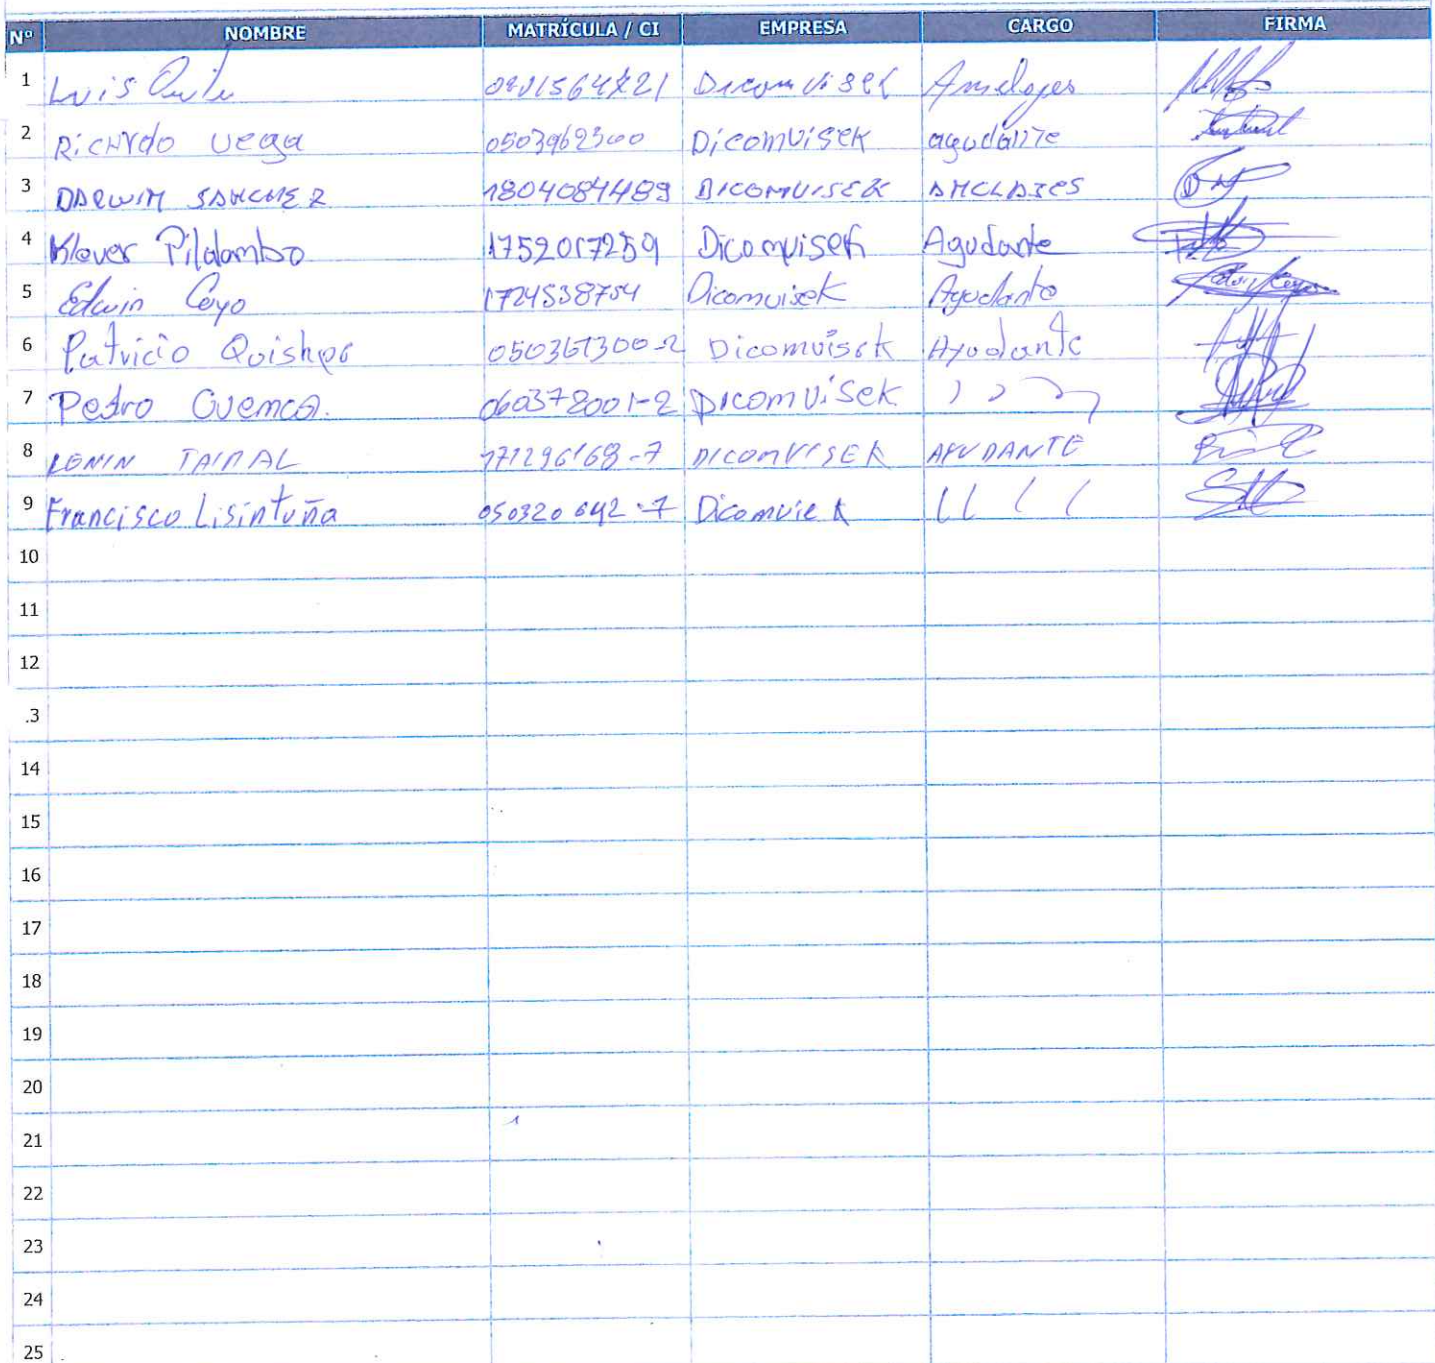 Nº NOMBRE MATRÍCULA / CI EMPRESA CARGO FIRMA
1 Luis Dicomvisek
2 Ricardo Vega 0503962300 Dicomvisek agudante
3 DARWIN SANCHEZ 1804084489 DICOMVISEK ANCLAJES
4 Klever Pilalombo 1752017259 Dicomvisek Agudante
5 Edwin Coyo 1724538754 Dicomvisek Ayudante
6 Patricio Quishpe 050367300-2 Dicomvisek Ayudante
7 Pedro Cuenca. 060378001-2 Dicomvisek
8 LENIN TAIPAL 171296168-7 DICOMVISEK AYUDANTE
9 Francisco Lisintuña 050320642-7 Dicomviek
10
11
12
.3
14
15
16
17
18
19
20
21
22
23
24
25